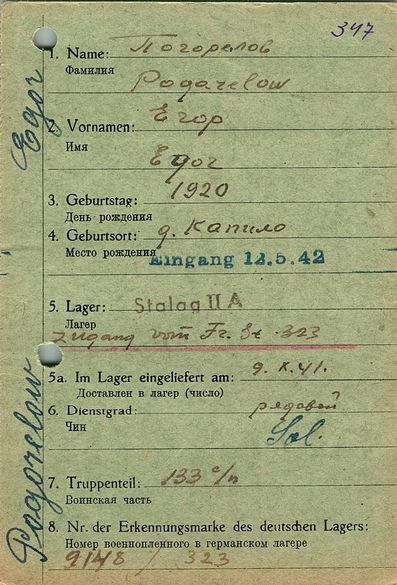 347
1. Name: Погорелов
Фамилия
Pogarelow
2. Vornamen: Егор
Имя
Egor
3. Geburtstag: 1920
День рождения
4. Geburtsort: д. Капило
Место рождения
Eingang 12.5.42
5. Lager: Stalag II A
Лагер
Zugang vom Fr. St. 323
5a. Im Lager eingeliefert am: 9. X. 41.
Доставлен в лагер (число)
6. Dienstgrad: рядовой
Чин
Sol.
7. Truppenteil: 133 с/п
Воинская часть
8. Nr. der Erkennungsmarke des deutschen Lagers:
Номер военнопленного в германском лагере
9148 / 323
Pogorelow
Egor